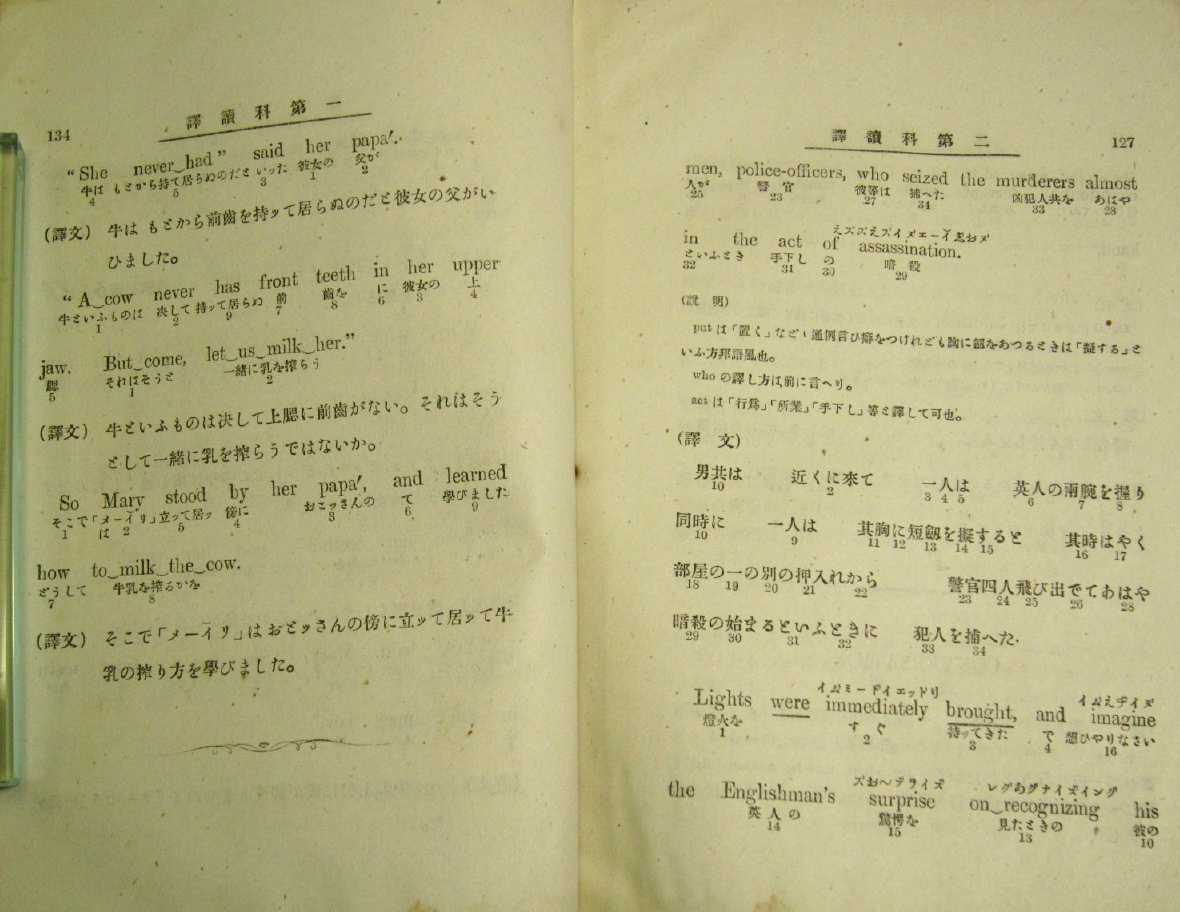 134
譯讀科第一
“She never had” said her papa.
牛は もとから持て居らぬのだと いった 彼女の 父が
4 5 3 1 2
(譯文) 牛は もとから前歯を持ッて居らぬのだと彼女の父がい
ひました。
“A cow never has front teeth in her upper
牛といふものは 决して 持ッて居らぬ 前 齒を に 彼女の 上
1 2 9 7 8 6 3 4
jaw. But come, let us milk her.”
腮 それはそうと 一緒に乳を搾らう
5 1 2
(譯文) 牛といふものは决して上腮に前歯がない。それはそう
として一緒に乳を搾らうではないか。
So Mary stood by her papa, and learned
そこで「メーイリ」は 立って居ッ 傍に おとッさんの て 學びました
1 2 5 4 3 6 9
how to milk the cow.
どうして 牛乳を搾るかを
7 8
(譯文) そこで「メーイリ」はおとッさんの傍に立ッて居ッて牛
乳の搾り方を學びました。
譯讀科第二
127
men, police-officers, who seized the murderers almost
人が 警官 彼等は 捕へた 凶犯人共を あはや
25 23 27 34 33 28
in the act of assassination.
といふとき 手下し の 暗殺
32 31 30 29
(說明)
put は「置く」など、通例言ひ癖をつけれども胸に劔をあつるときは「擬する」と
いふ方邦語風也。
who の譯し方は前に言へり。
act は「行爲」「所業」「手下し」等と譯して可也。
(譯文)
男共は 近くに來て 一人は 英人の兩腕を握り
10 2 3 4 5 6 7 8
同時に 一人は 其胸に短劔を擬すると 其時はやく
10 9 11 12 13 14 15 16 17
部屋の一の別の押入れから 警官四人飛び出でてあはや
18 19 20 21 22 23 24 25 26 28
暗殺の始まるといふときに 犯人を捕へた.
29 30 31 32 33 34
イムミードイエッドリ
Lights were immediately brought, and imagine
燈火を すぐ 持ッてきた て 想ひやりなさい
1 2 3 4 16
the Englishman's surprise on recognizing his
英人の 驚愕を 見たときの 彼の
14 15 13 10